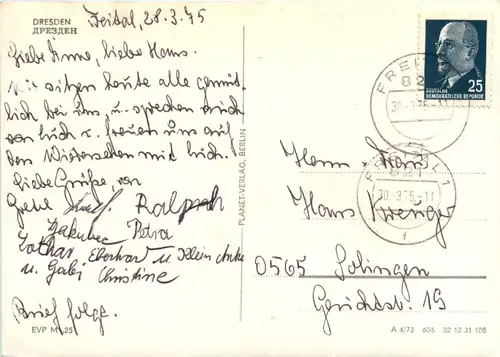 DRESDEN
ДРЕЗДЕН
Freital, 28.3.75
Liebe Änne, liebe Hans.
Wir sitzen heute alle gemüt-
lich bei uns, u. sprechen auch
von Euch u. freuen uns auf
das Wiedersehen mit Euch.
Liebe Grüße, von
Grete Ralph
Petra
Lothar Eberhard u. Klein Anke
u. Gabi Christine
Brief folgt.
EVP M -,25
PLANET-VERLAG, BERLIN
FREITAL
821
30.-3.75-11
25
DEUTSCHE
DEMOKRATISCHE REPUBLIK
FREITAL 1
821
30.-3.75-11
f
Herrn - Frau
Hans Krenzer
0565 Solingen
Gerichtstr. 19
A 4/73 606 02 12 31 108